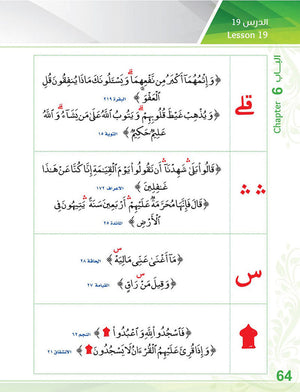 الدرس 19
Lesson 19
الباب 6 Chapter
﴿ وَإِثْمُهُمَآ أَكْبَرُ مِن نَّفْعِهِمَا ۗ وَيَسْـَٔلُونَكَ مَاذَا يُنفِقُونَ قُلِ
ٱلْعَفْوَ ۗ ﴾ البقرة ٢١٩
﴿ وَيُذْهِبْ غَيْظَ قُلُوبِهِمْ ۗ وَيَتُوبُ ٱللَّهُ عَلَىٰ مَن يَشَآءُ ۗ وَٱللَّهُ
عَلِيمٌ حَكِيمٌ ﴾ التوبة ١٥
قلے
﴿ قَالُوا۟ بَلَىٰ ۛ شَهِدْنَآ ۛ أَن تَقُولُوا۟ يَوْمَ ٱلْقِيَـٰمَةِ إِنَّا كُنَّا عَنْ هَـٰذَا
غَـٰفِلِينَ ﴾ الأعراف ١٧٢
﴿ قَالَ فَإِنَّهَا مُحَرَّمَةٌ عَلَيْهِمْ ۛ أَرْبَعِينَ سَنَةً ۛ يَتِيهُونَ فِى
ٱلْأَرْضِ ﴾ المائدة ٢٥
﴿ مَآ أَغْنَىٰ عَنِّى مَالِيَهْ ۜ ﴾ الحاقة ٢٨
﴿ وَقِيلَ مَنْ ۜ رَاقٍ ﴾ القيامة ٢٧
س
﴿ فَٱسْجُدُوا۟ لِلَّهِ وَٱعْبُدُوا۟ ۩ ﴾ النجم ٦٢
﴿ وَإِذَا قُرِئَ عَلَيْهِمُ ٱلْقُرْءَانُ لَا يَسْجُدُونَ ۩ ﴾ الانشقاق ٢١
64